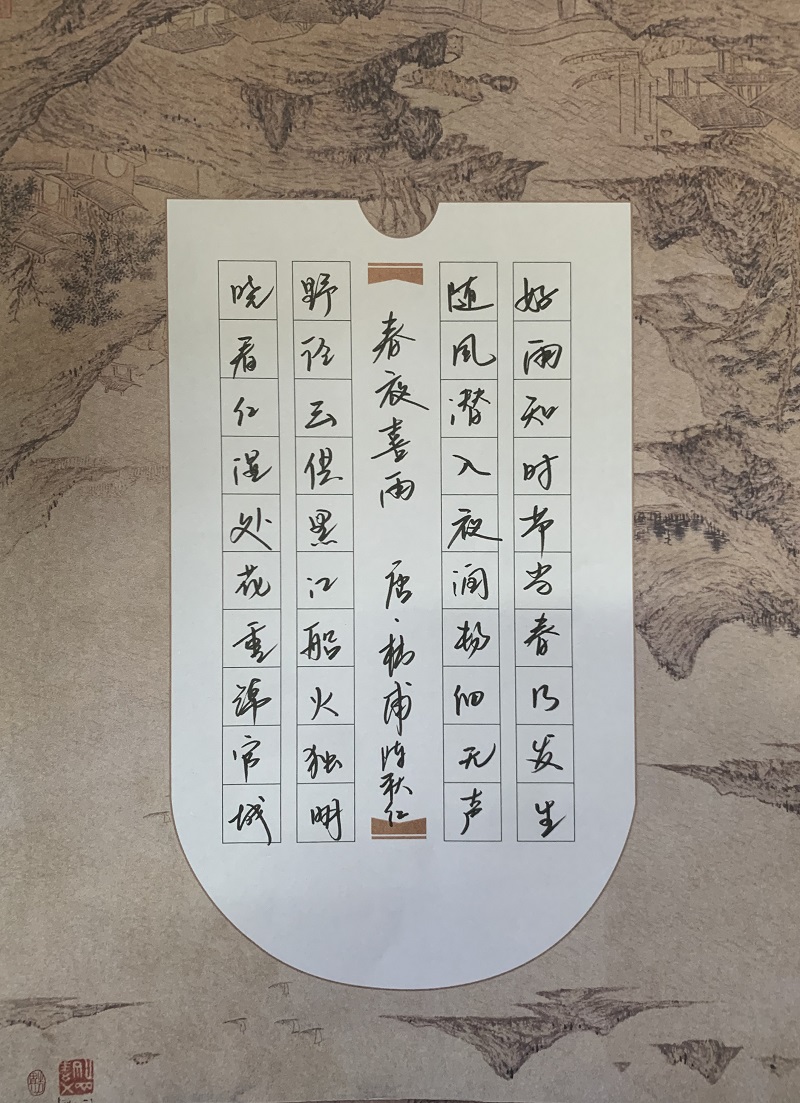 好雨知时节当春乃发生
随风潜入夜润物细无声
春夜喜雨 唐·杜甫 陈秋红
野径云俱黑江船火独明
晓看红湿处花重锦官城